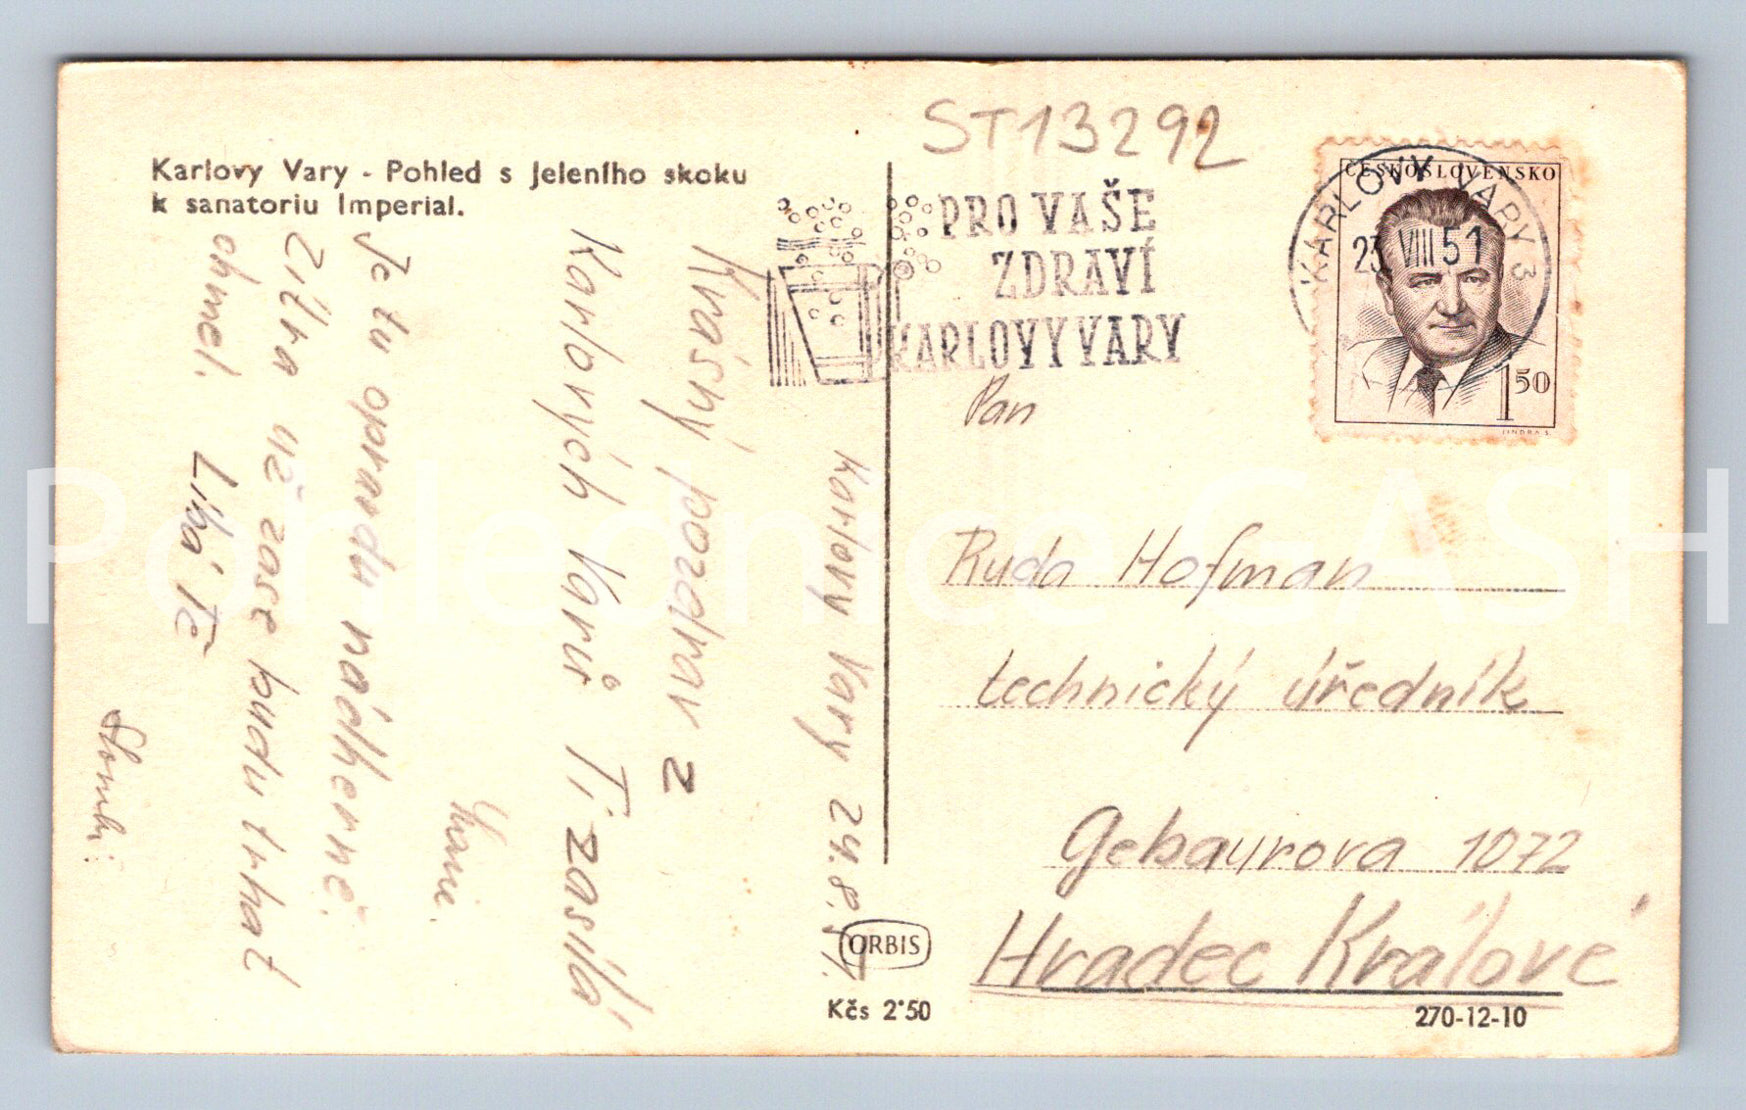 Karlovy Vary - Pohled s Jeleního skoku
k sanatoriu Imperial.
ST13292
PRO VAŠE
ZDRAVÍ
KARLOVY VARY
ČESKOSLOVENSKO
KARLOVY VARY 3
23. VIII 51
1 50
JINDRA S.
Karlovy Vary 24.8.
Krásný pozdrav z
Karlových Varů Ti zasílá
Je tu opravdu nádherně.
Zítra už zase budu trhat
chmel. Líbá Tě
Pan
Ruda Hofman
technický úředník
Gebaurova 1072
Hradec Králové
ORBIS
Kčs 2·50
270-12-10
Pohlednice GASH